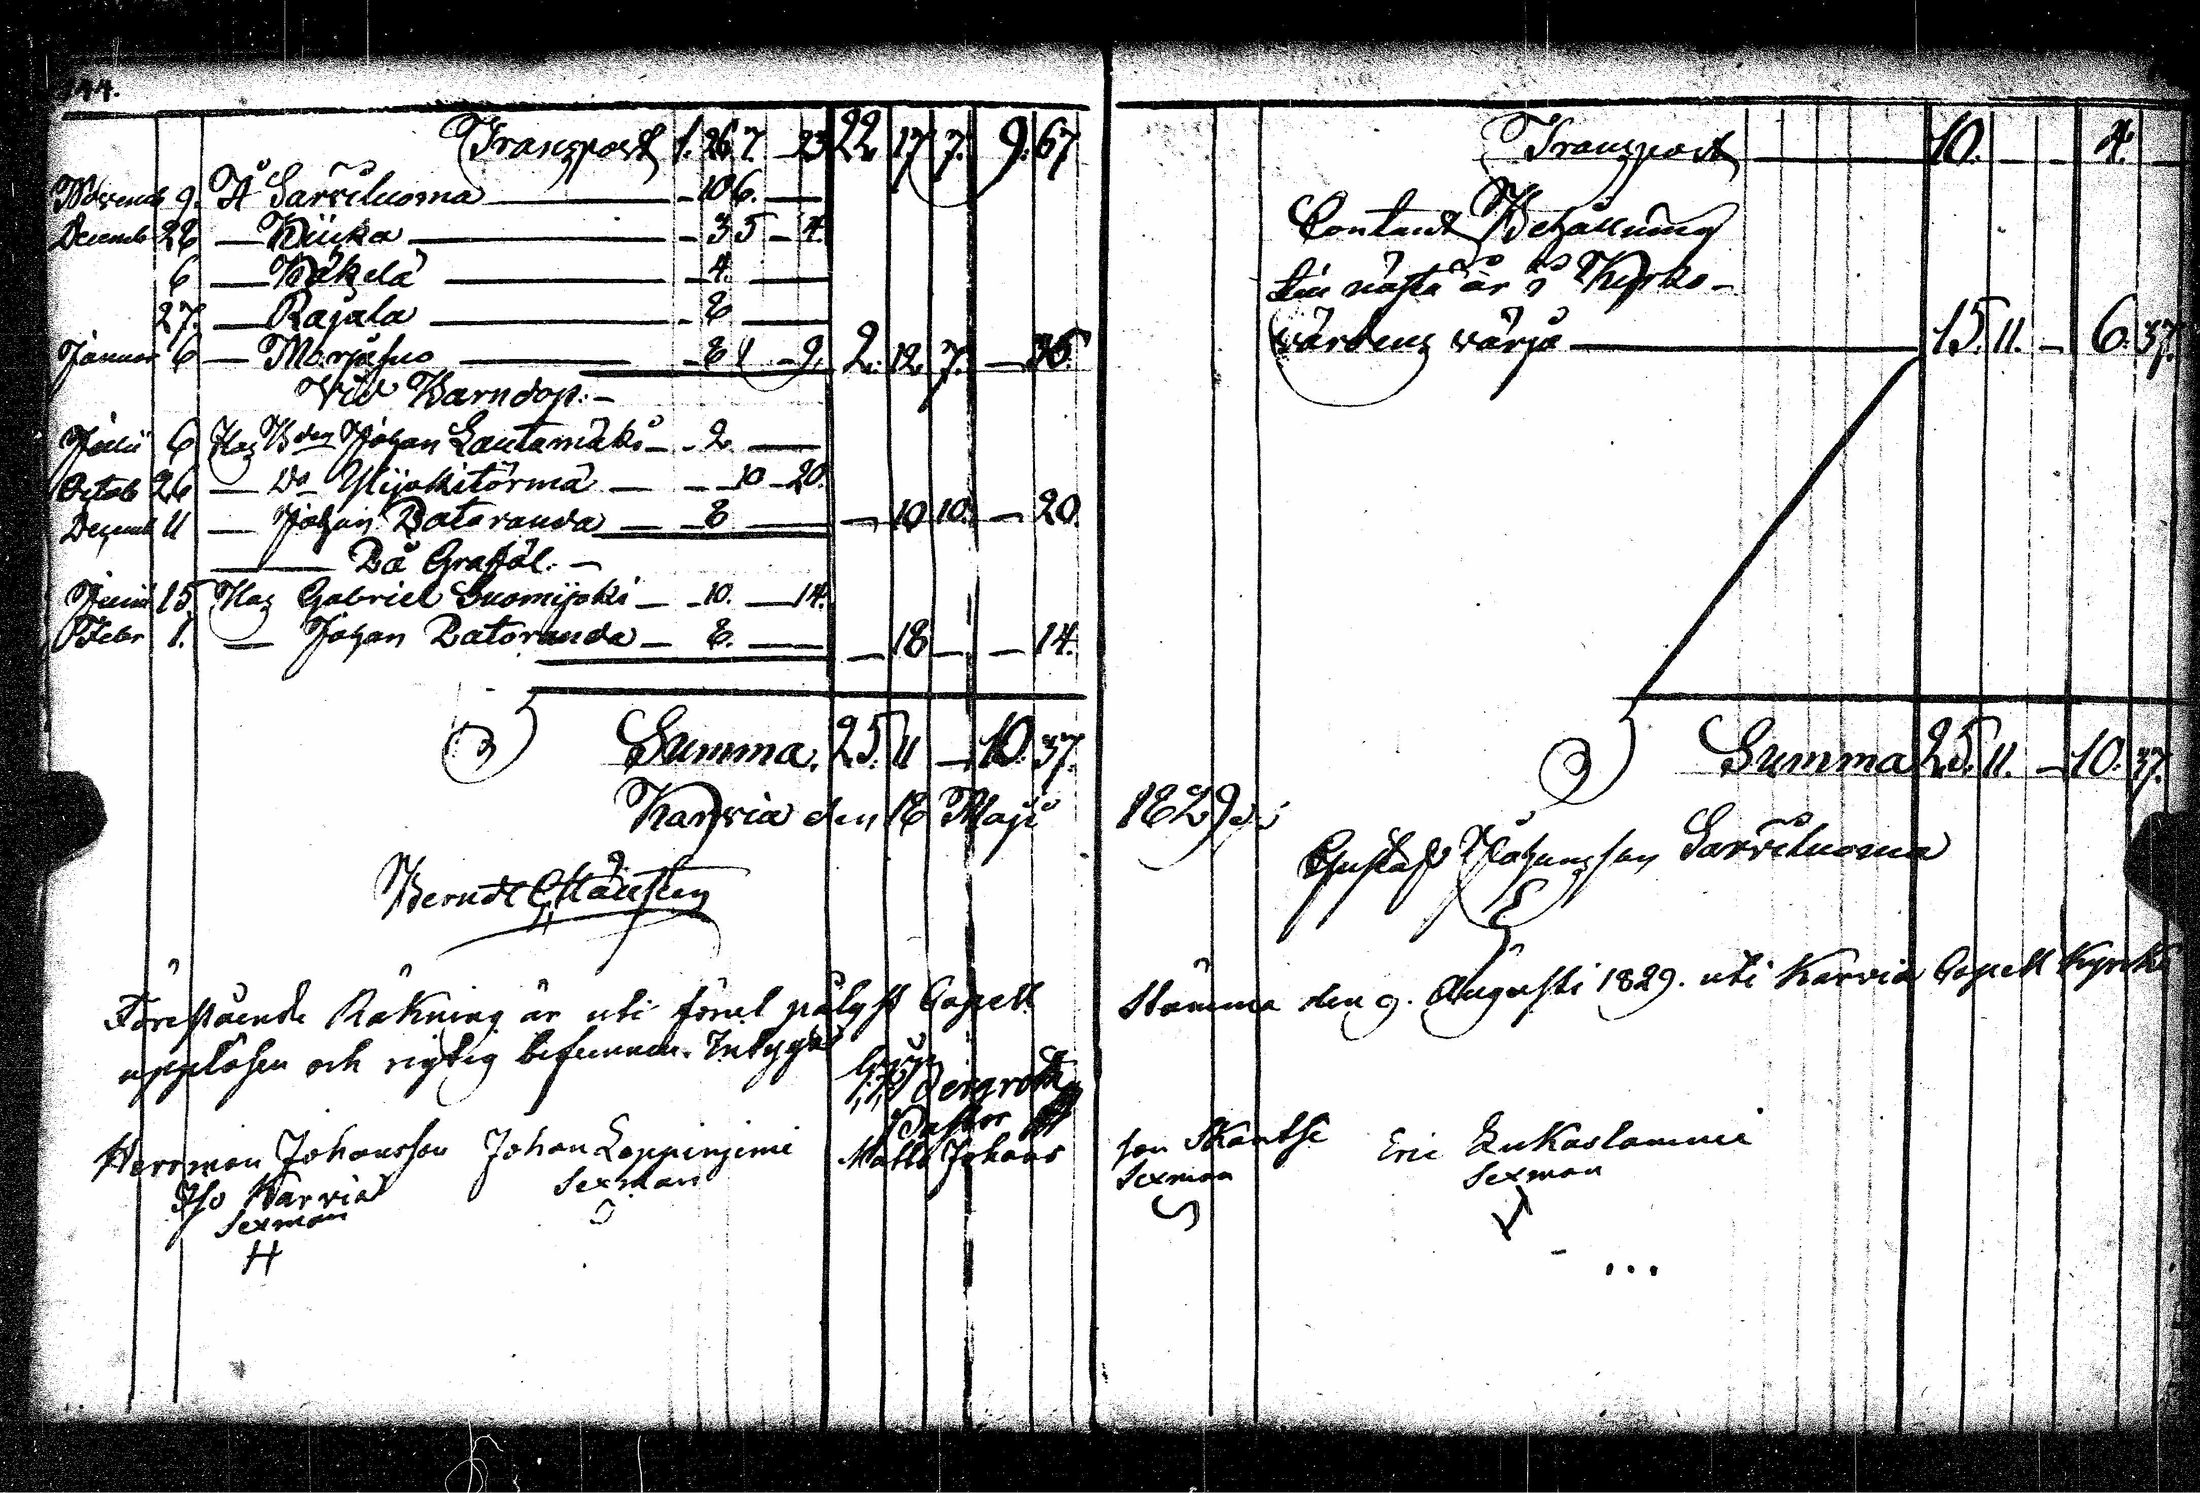 144.
Transport 1. 26 7. — 23 22 17 7. 9. 67
Novemb 9. Å Sarviluoma — 10 6. —
Decemb 28 — Kiicka — 3 5 — 4.
6 — Käkelä — 4. —
27. — Rajala — 8 —
Januar 6 — Marjasuo — 8 1 — 9. 2. 12 7. — 36.
Vid Barndop. —
Julii 6 Hos Bdn Johan Lautamäki — 2 —
Octob 26 — Do Ylijokitörmä — — 10 — 20.
Decemb 11 — Johan Patoranda — 8 — — 10 10. — 20.
På Grafföl. —
Junii 15 Hos Gabriel Suomijoki — 10. — 14.
Febr 1. — Johan Patoranda — 8. — — 18 — — 14.
Summa. 25. 11 — 10. 37.
Karvia den 18 Maji
Berndt
Förestående Räkning är uti förut pålyst Capell
uppläsen och rigtig befunnen. Intygar
Bergroth
Pastor
Herrman Johansson Johan Leppinjemi Matts Johans
Iso Karvia Sexman
Sexman
H
Transport — 10. — — 4. —
Contant Behållning
till nästa år i Kyrko-
värdens värjo — 15. 11. — 6. 37.
Summa 25. 11. — 10. 37.
1829
Gustaf Johansson Sarviluoma
Stämma den 9. Augusti 1829. uti Karvia Capell Kyrka
son Skantsi Eric
Sexman Sexman